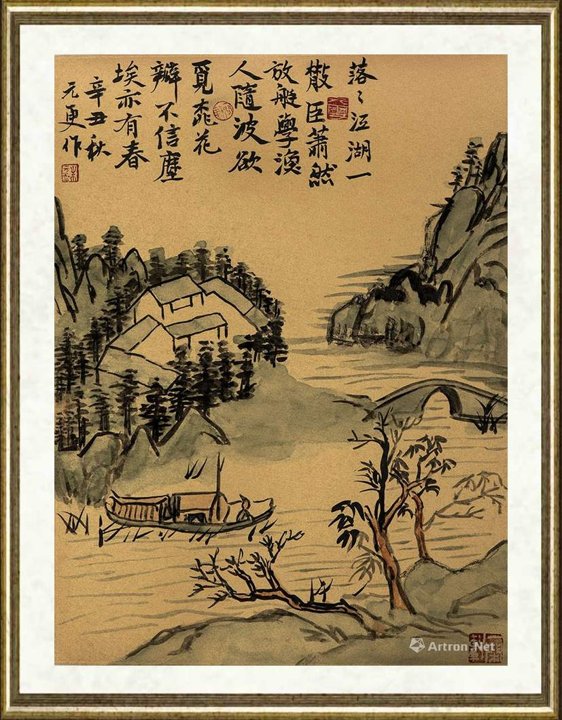 落々江湖一
散臣蕭然
放艇學漁
人隨波欲
覓桃花
瓣不信塵
埃亦有春
辛丑秋
元更作
Artron.Net